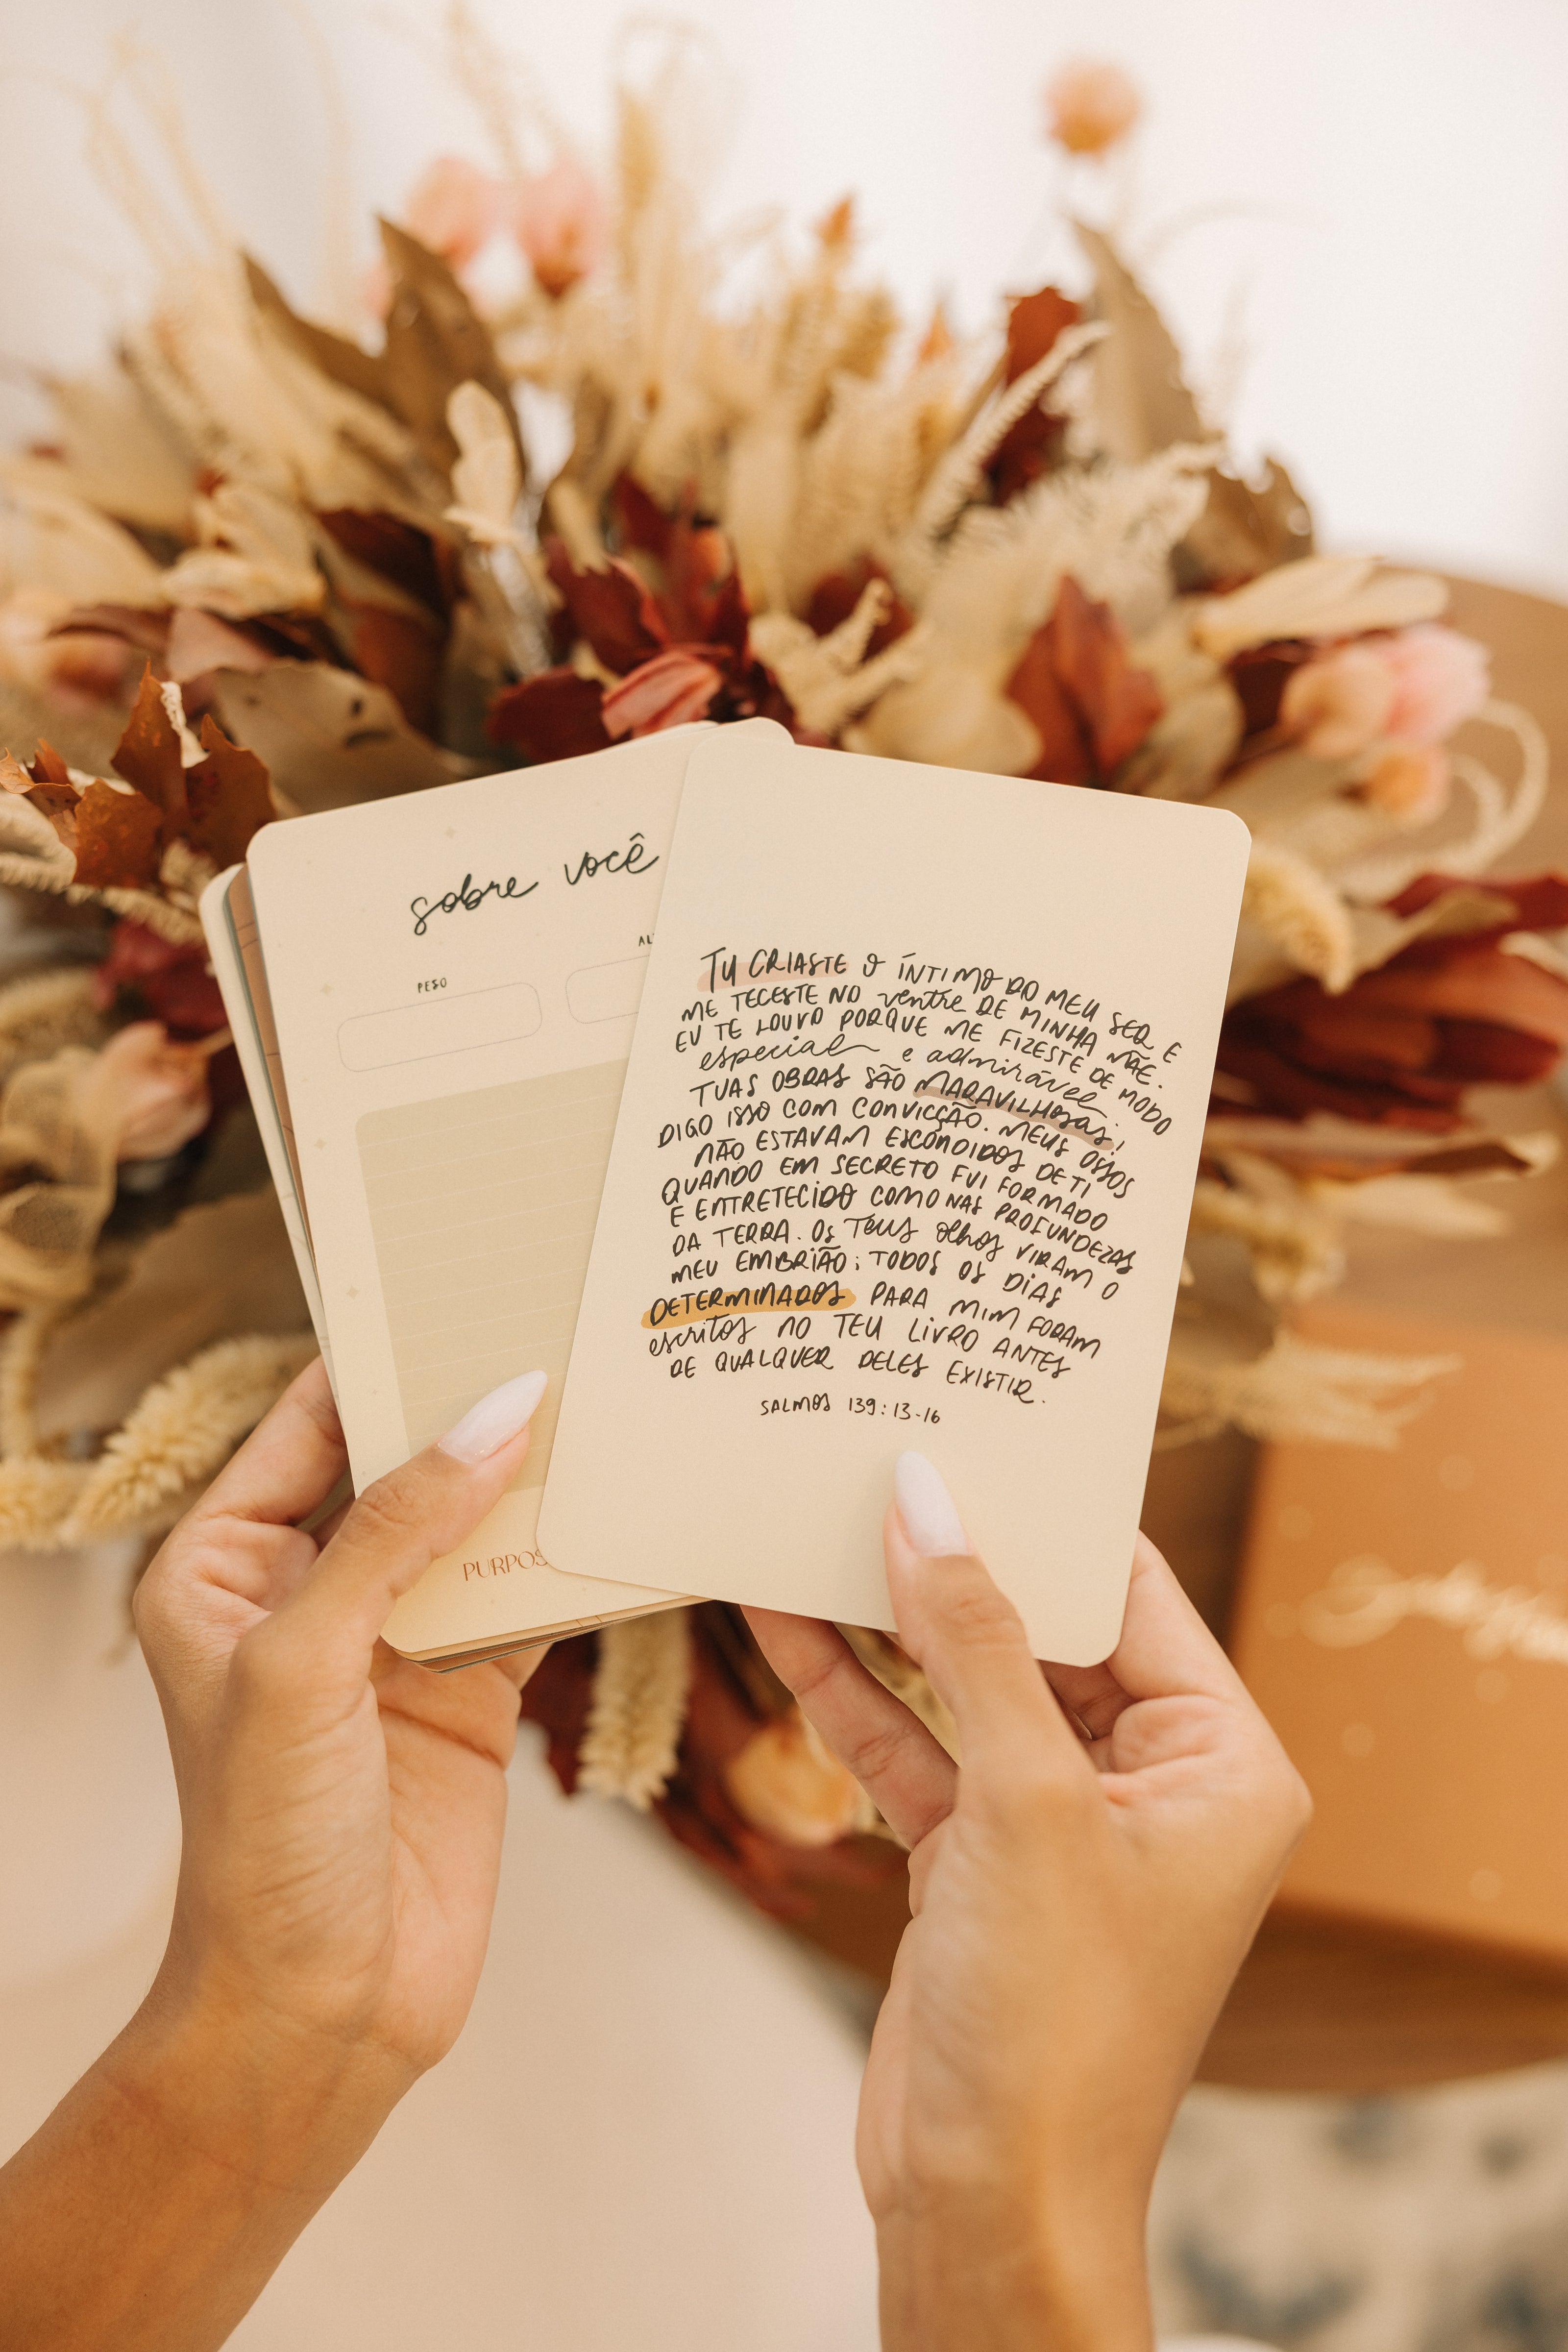 sobre você
PESO
AL
PURPOS
TU CRIASTE O ÍNTIMO DO MEU SER E
ME TECESTE NO ventre DE MINHA MÃE.
EU TE LOUVO PORQUE ME FIZESTE DE MODO
especial e admirável.
TUAS OBRAS SÃO MARAVILHOSAS;
DIGO ISSO COM CONVICÇÃO. MEUS OSSOS
NÃO ESTAVAM ESCONDIDOS DE TI
QUANDO EM SECRETO FUI FORMADO
E ENTRETECIDO COMO NAS PROFUNDEZAS
DA TERRA. OS TEUS olhos VIRAM O
MEU EMBRIÃO; TODOS OS DIAS
DETERMINADOS PARA MIM FORAM
escritos NO TEU LIVRO ANTES
DE QUALQUER DELES EXISTIR.
SALMOS 139:13-16